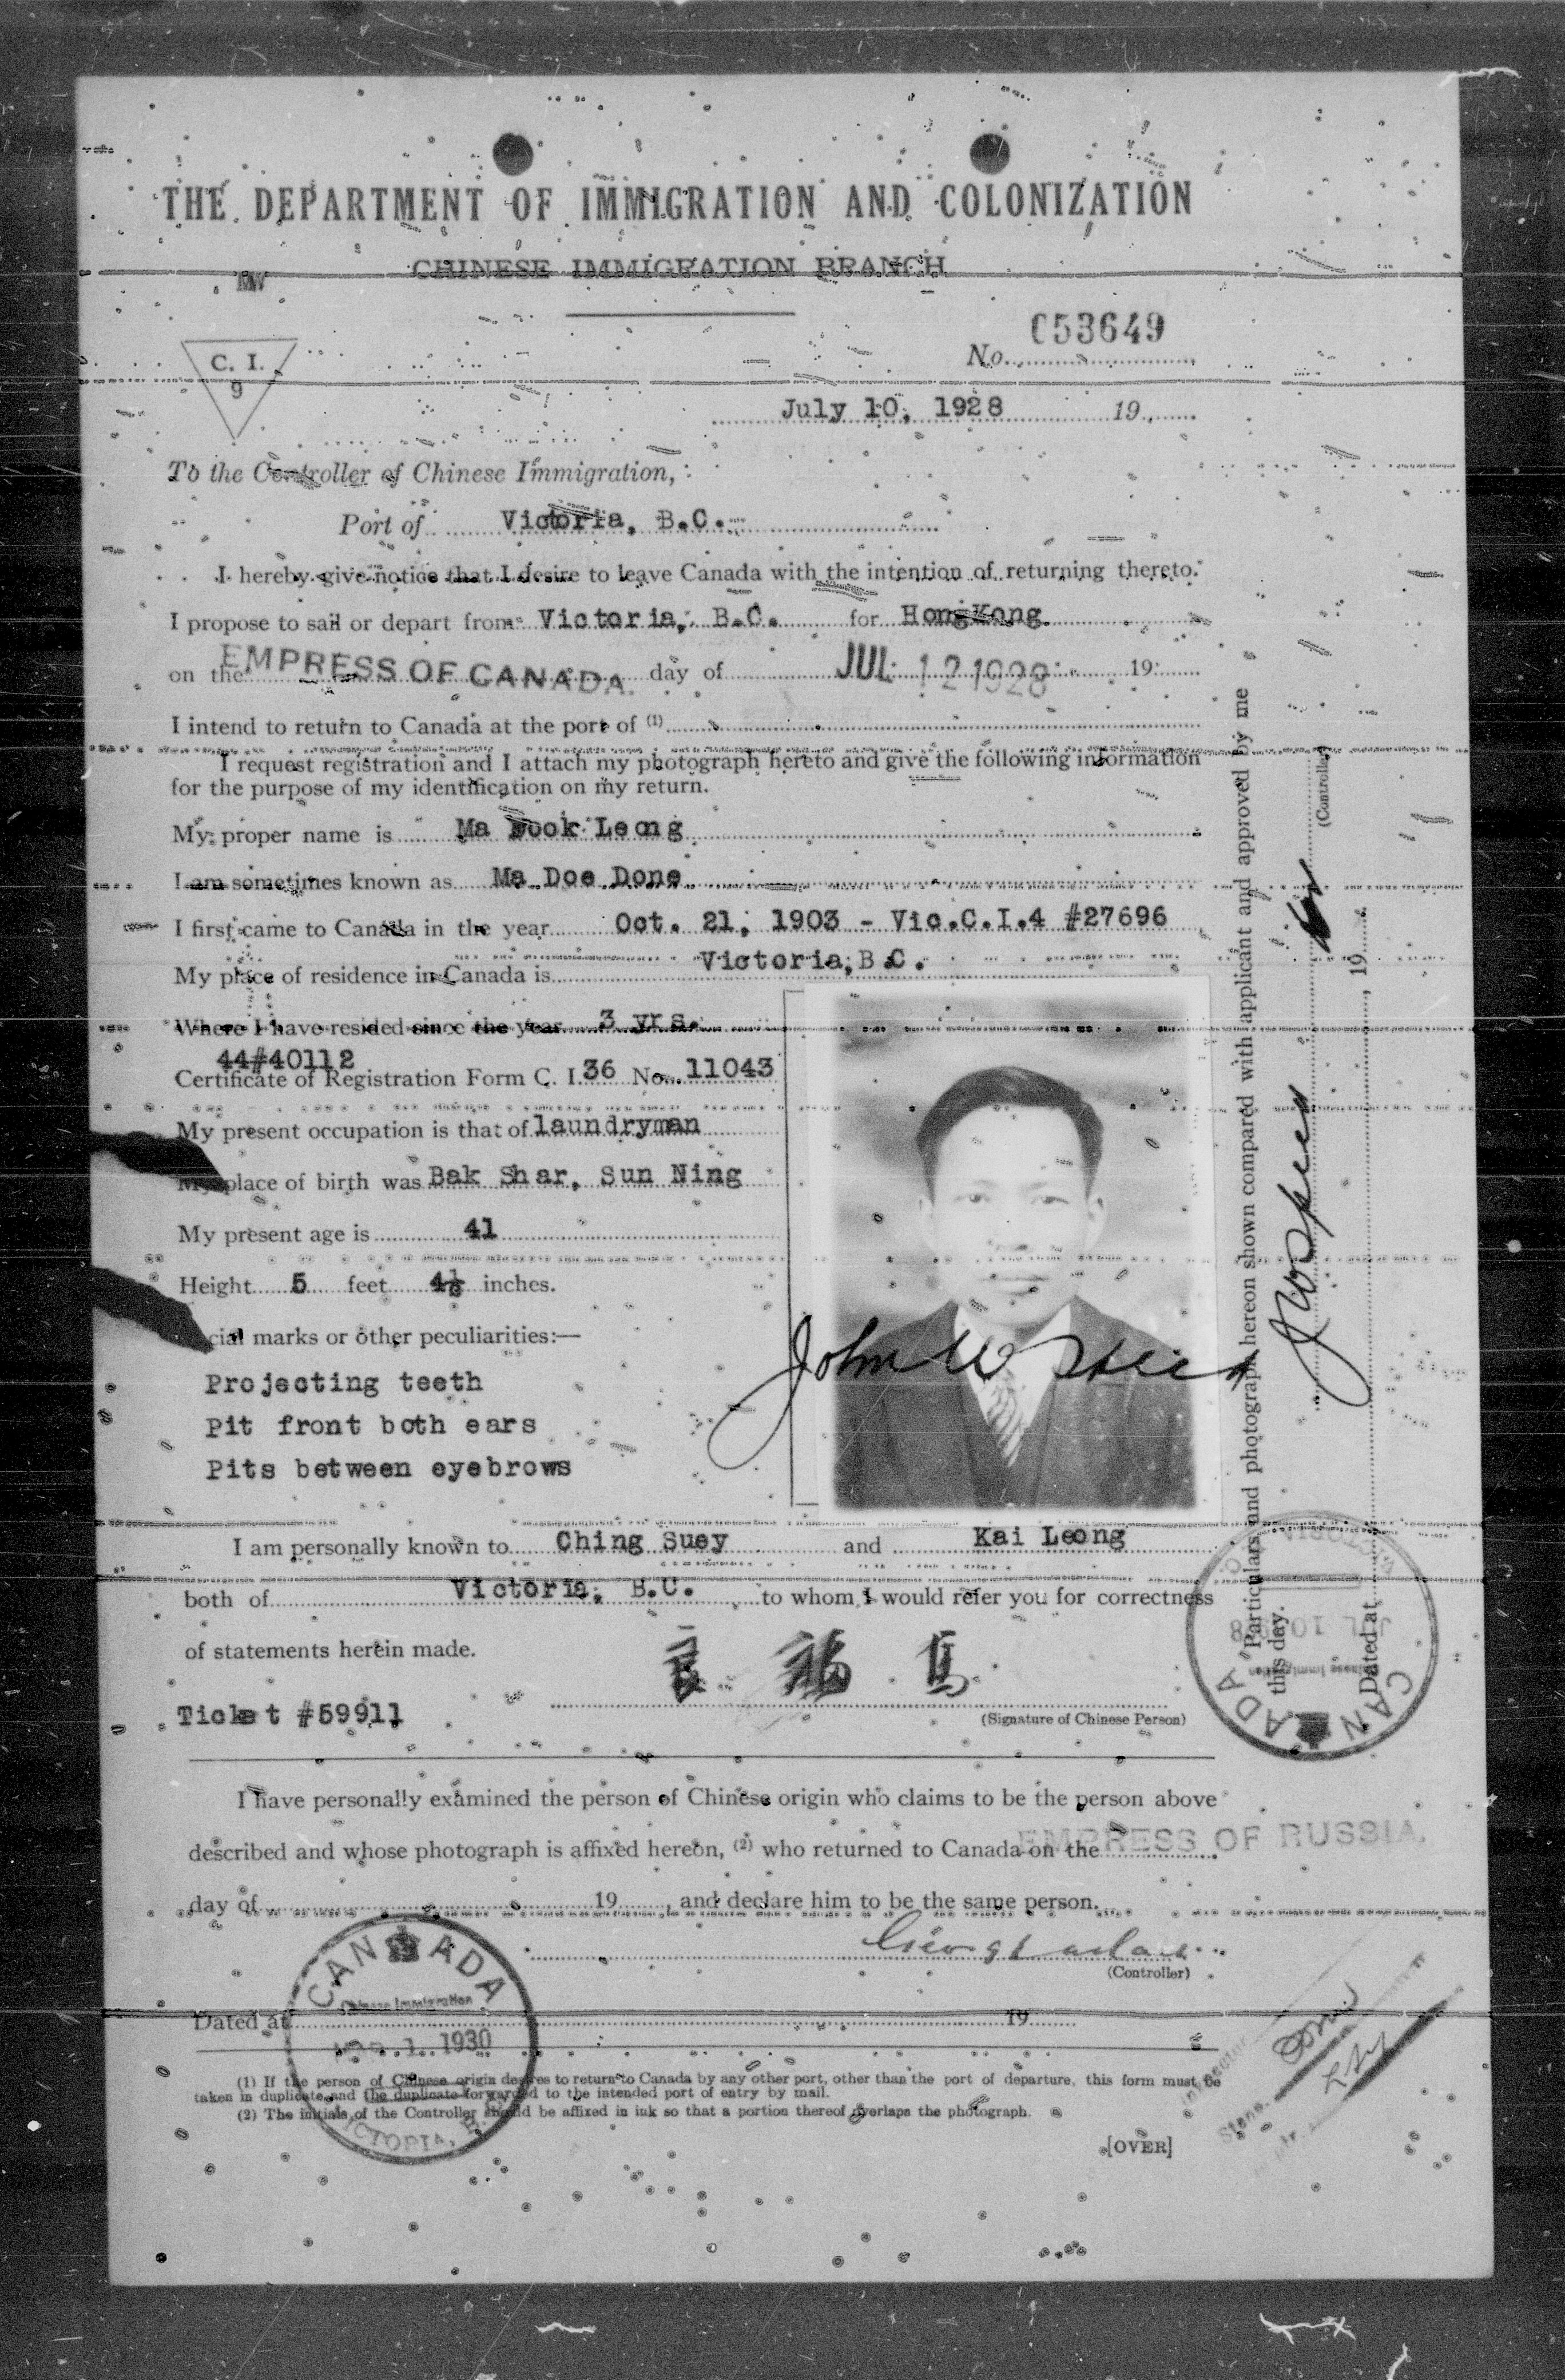 THE DEPARTMENT OF IMMIGRATION AND COLONIZATION
CHINESE IMMIGRATION BRANCH
C. I.
9
053649
No.
July 10, 1928 19
To the Controller of Chinese Immigration,
Port of Victoria, B.C.
I hereby give notice that I desire to leave Canada with the intention of returning thereto.
I propose to sail or depart from Victoria, B.C. for HongKong.
on the EMPRESS OF CANADA. day of JUL 12 1928 19
I intend to return to Canada at the port of (1)
I request registration and I attach my photograph hereto and give the following information
for the purpose of my identification on my return.
My proper name is Ma Fook Leong
I am sometimes known as Ma Doe Done
I first came to Canada in the year Oct. 21, 1903 - Vic.C.I.4 #27696
My place of residence in Canada is Victoria, B.C.
Where I have resided since the year 3 yrs.
44#40112
Certificate of Registration Form C. I. 36 No. 11043
My present occupation is that of laundryman
My place of birth was Bak Shar, Sun Ning
My present age is 41
Height 5 feet 4½ inches.
cial marks or other peculiarities:—
Projecting teeth
Pit front both ears
Pits between eyebrows
John W
I am personally known to Ching Suey and Kai Leong
both of Victoria, B.C. to whom I would refer you for correctness
of statements herein made.
良 福 馬
Ticket #59911
(Signature of Chinese Person)
I have personally examined the person of Chinese origin who claims to be the person above
described and whose photograph is affixed hereon, (2) who returned to Canada on the
EMPRESS OF RUSSIA.
day of 19 , and declare him to be the same person.
(Controller)
Dated at 19
CANADA
Chinese Immigration
1 1930
VICTORIA, B.C.
(1) If the person of Chinese origin desires to return to Canada by any other port, other than the port of departure, this form must be
taken in duplicate and the duplicate forwarded to the intended port of entry by mail.
(2) The initials of the Controller should be affixed in ink so that a portion thereof overlaps the photograph.
[OVER]
Particulars and photograph hereon shown compared with applicant and approved by me
this day.
(Controller)
Dated at , 19
CANADA
Chinese Immigration
JUL 10 1928
VICTORIA, B.C.